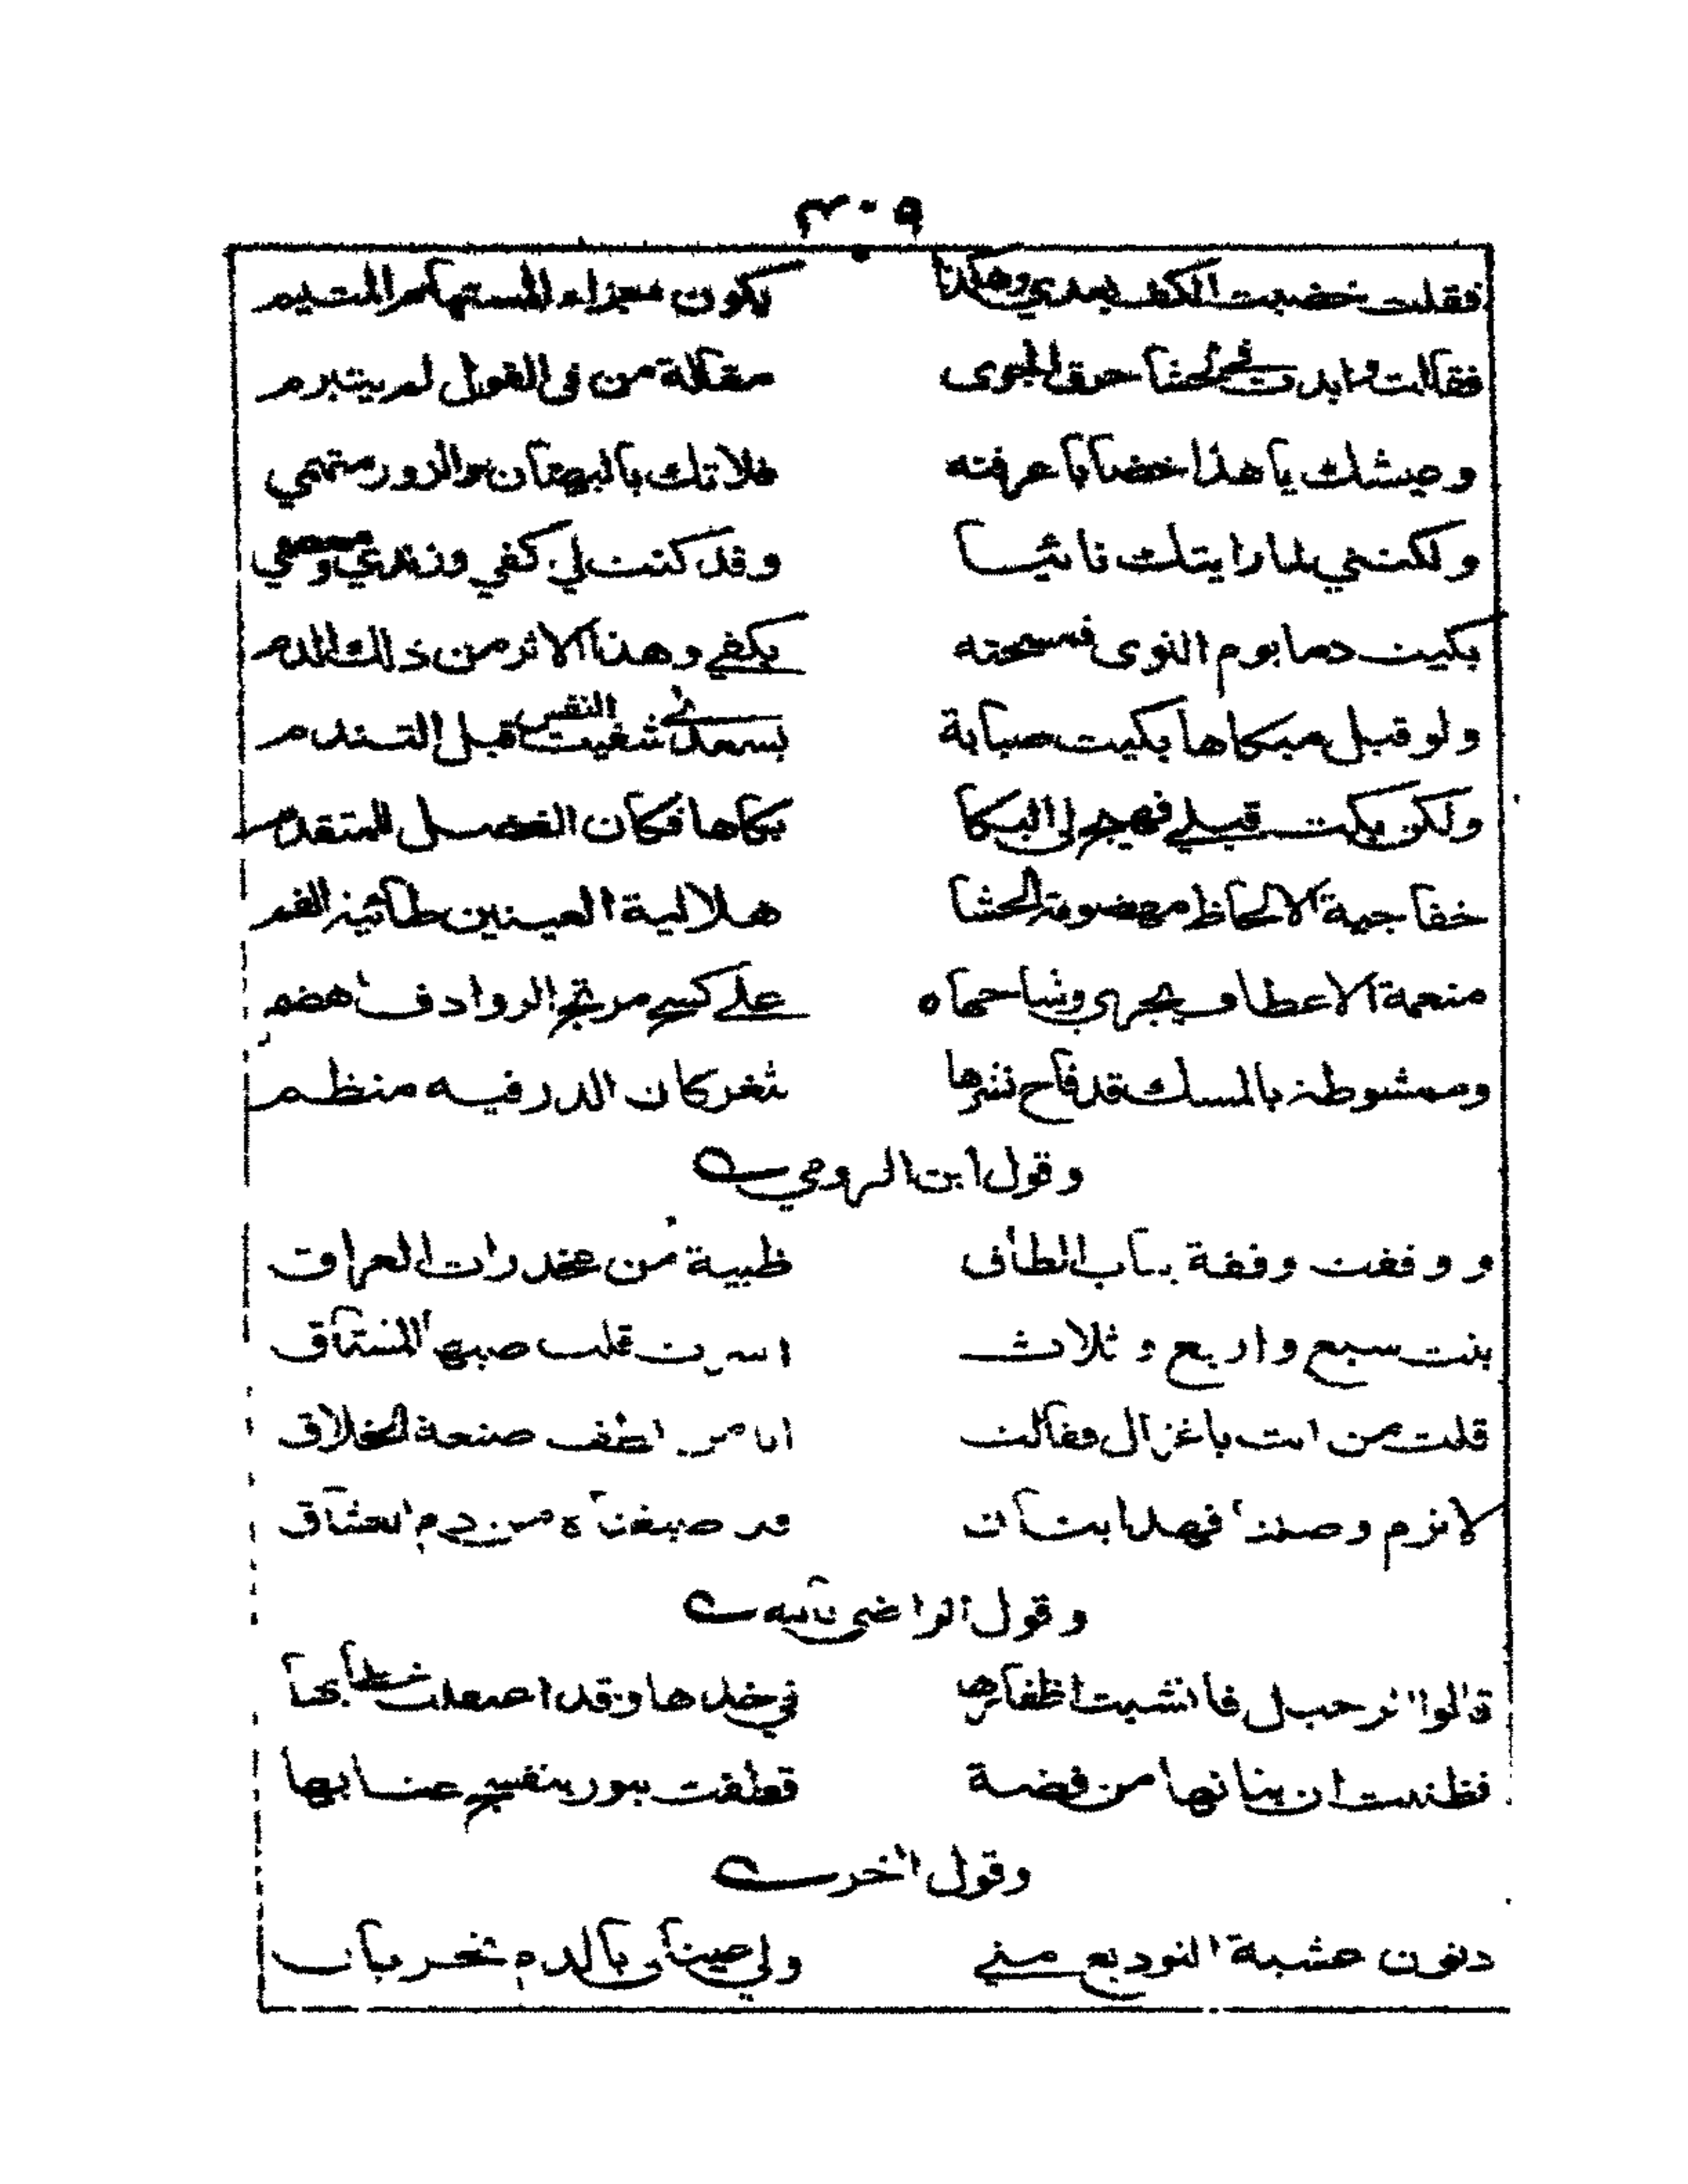 ٣٠٩
فقلت خضبت الكف بعدي وهكذا يكون جزاء المستهام المتيم
فقالت وابدت في الحشا حرق الجوى مقالة من في القول لم يتبرم
وعيشك يا هذا خضابا عرفته فلاتك بالبهتان والزور متهمي
ولكنني لما رايتك نائيا وقد كنت لي كفي وزندي ومعصمي
بكيت دما يوم النوى فمسحته بكفي وهذا الاثر من ذلك الدم
ولو قبل مبكاها بكيت صبابة بسعدى شفيت النفس قبل التندم
ولكن بكت قبلي فهيج لي البكا بكاها فكان الفضل للمتقدم
خفاجية الالحاظ مهضومة الحشا هلالية العينين طائية الفم
منعمة الاعطاف يجري وشاحها على كسح مرتج الروادف اهضم
وممشوطة بالمسك قد فاح نشرها بثغر كان الدر فيه منظم
وقول ابن الرومي
ووقفت وقفة بباب الطاف ظبية من مخدرات العراق
بنت سبع واربع وثلاث اسرت قلب صبها المشتاق
قلت من انت يا غزال فقالت انا من لطف صنعة الخلاق
لا ترم وصلنا فهذا بنان قد صبغناه من دم العشاق
وقول الراضي بالله
قالوا الرحيل فانشبت اظفارها في خدها وقد اعتعلت خضابها
فظننت ان بنانها من فضة قطفت بنور بنفسج عنابها
وقول اخر
دنون عشية التوديع مني ولي عينان بالدم تجريان